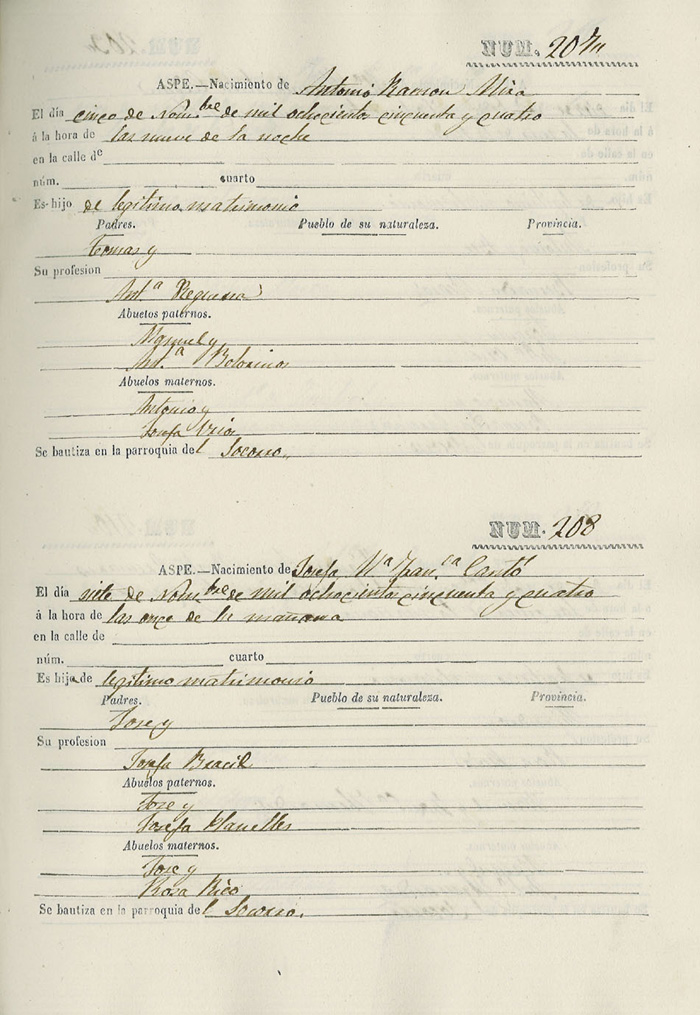 NUM. 207
ASPE.—Nacimiento de Antonio Ramon Mira
El dia cinco de Nom.bre de mil ochocientos cincuenta y cuatro
á la hora de las nueve de la noche
en la calle de
núm. cuarto
Es hijo de legitimo matrimonio
Padres. Pueblo de su naturaleza. Provincia.
Tomas y
Su profesion
Ant.a
Abuelos paternos.
Manuel y
Ant.a
Abuelos maternos.
Antonio y
Josefa
Se bautiza en la parroquia del Socorro.
NUM. 208
ASPE.—Nacimiento de Josefa M.a Fran.ca Cantó
El dia siete de Nom.bre de mil ochocientos cincuenta y cuatro
á la hora de las once de la mañana
en la calle de
núm. cuarto
Es hija de legitimo matrimonio
Padres. Pueblo de su naturaleza. Provincia.
Jose y
Su profesion
Josefa
Abuelos paternos.
Jose y
Josefa Planelles
Abuelos maternos.
Jose y
Rosa Rico
Se bautiza en la parroquia del Socorro.